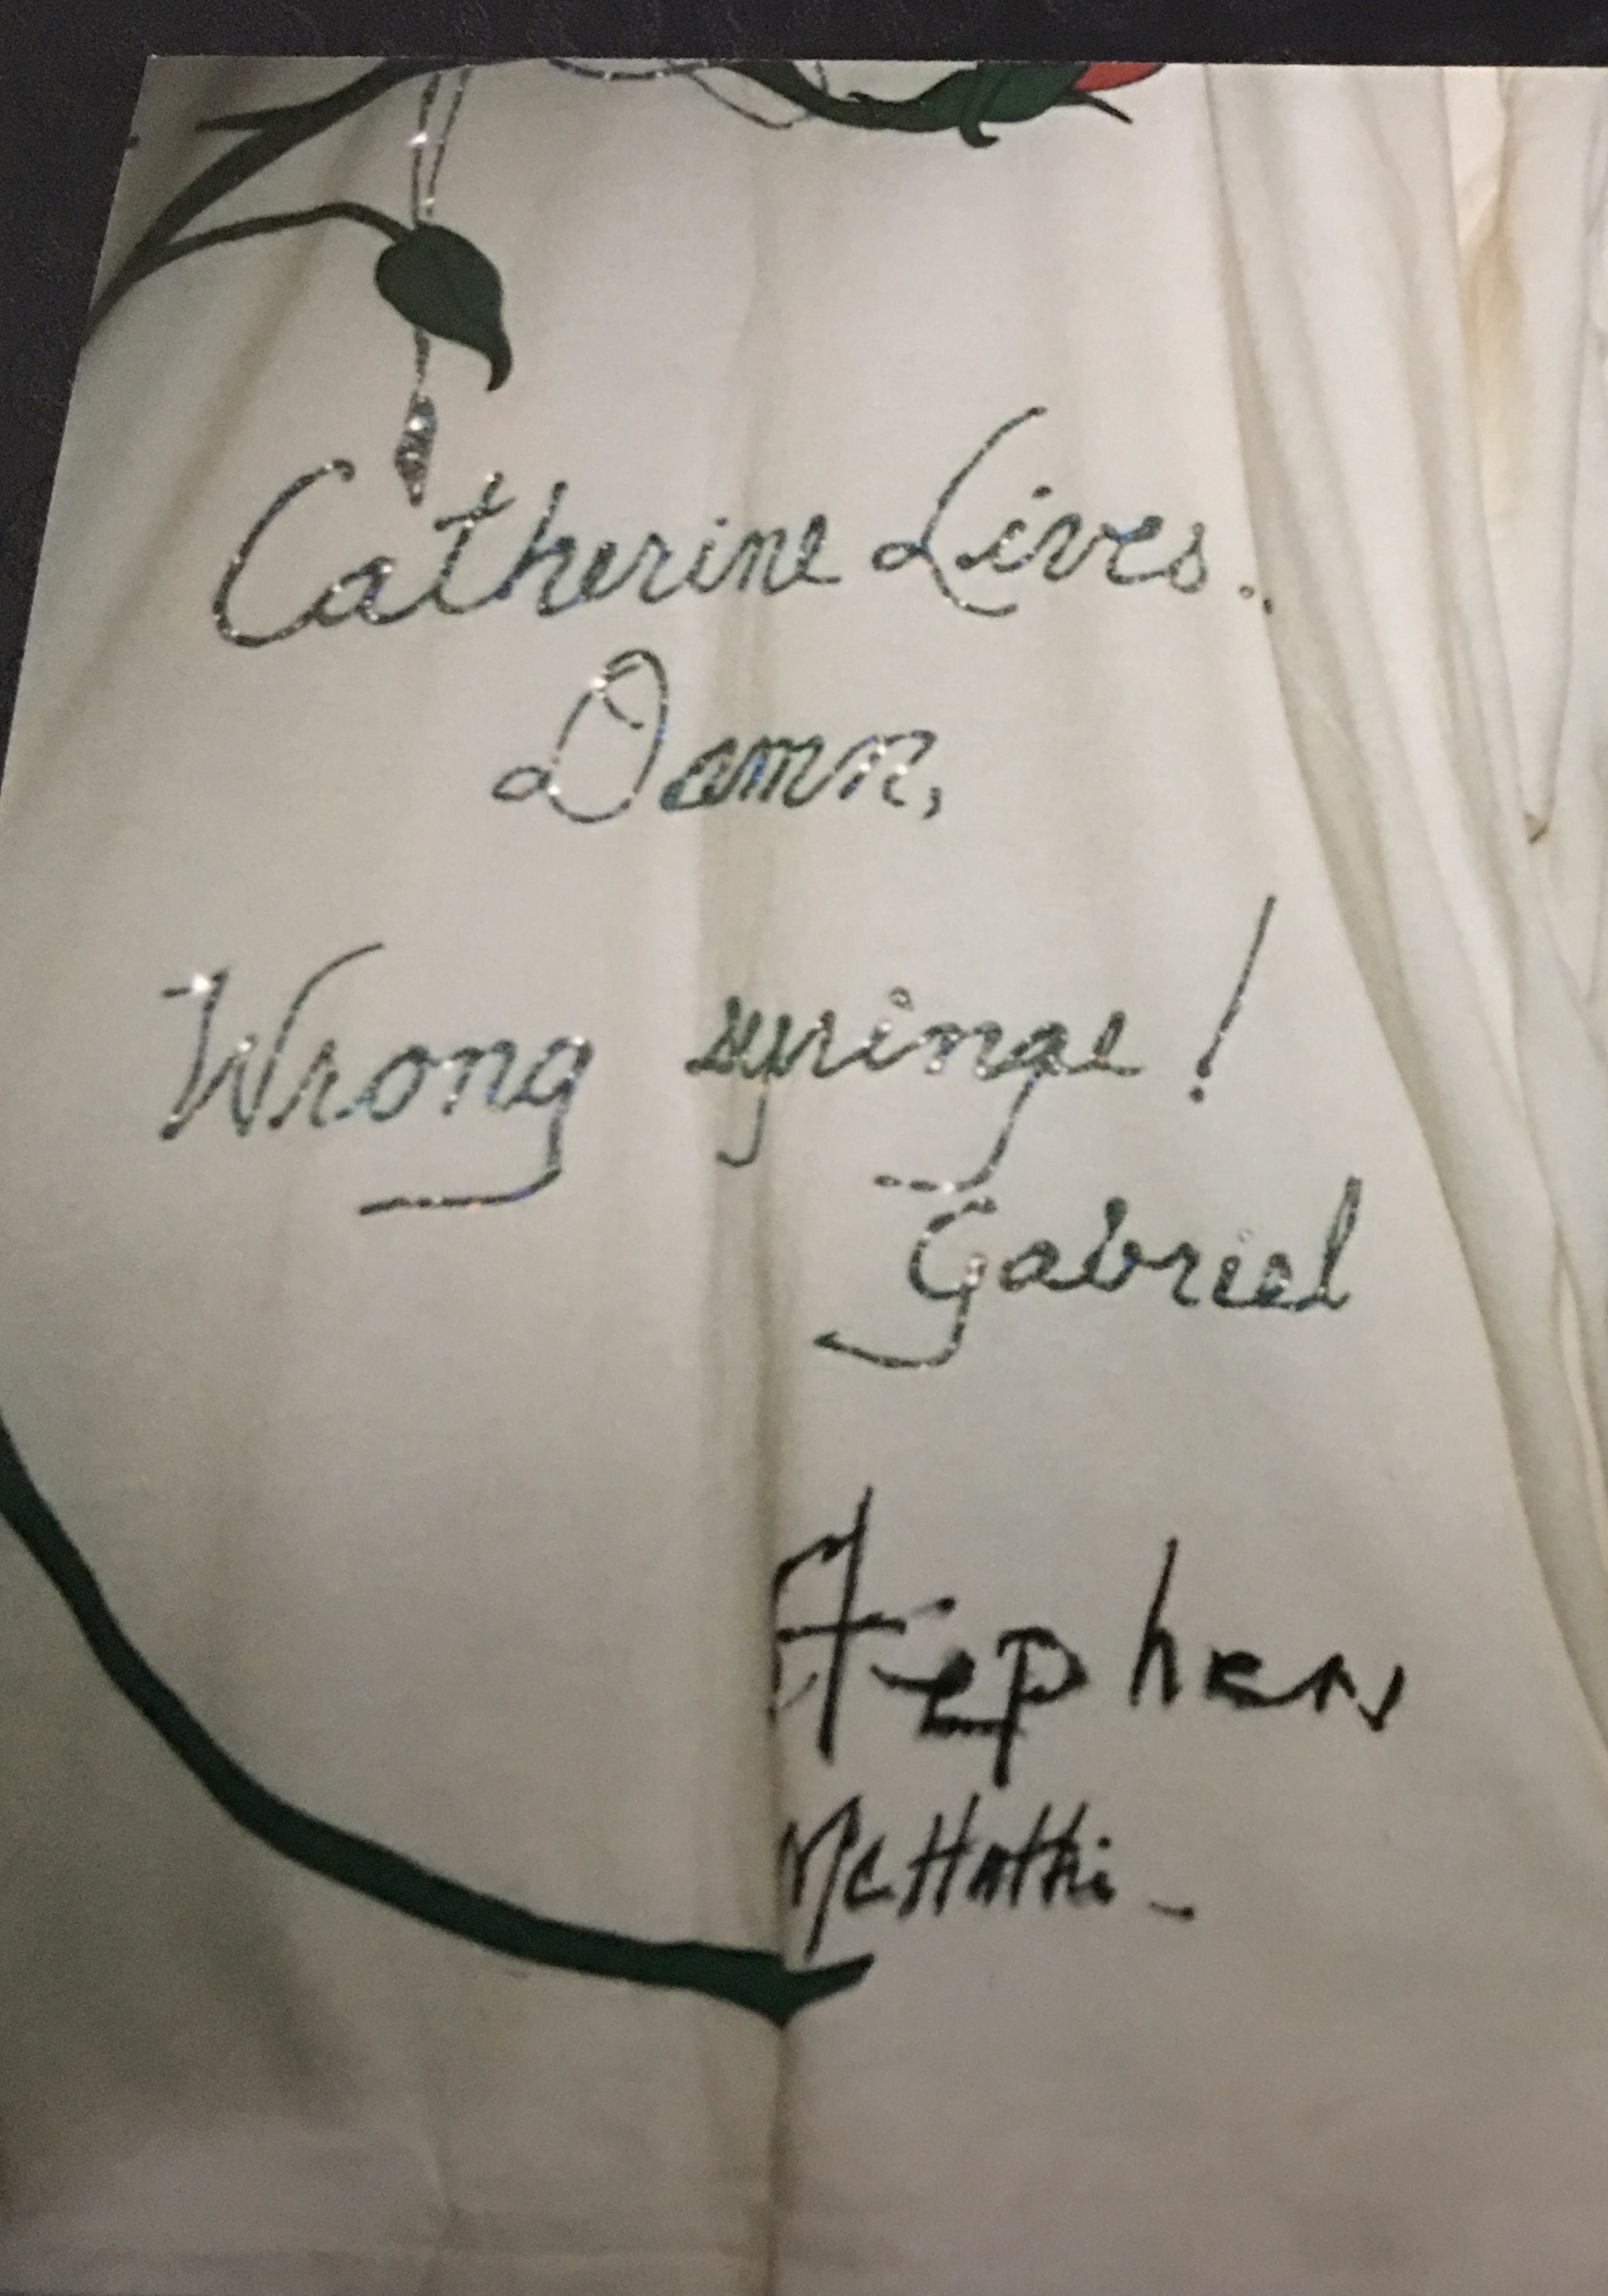 Catherine Lives..
Damn,
Wrong syringe!
Gabriel
Stephen
McHattie